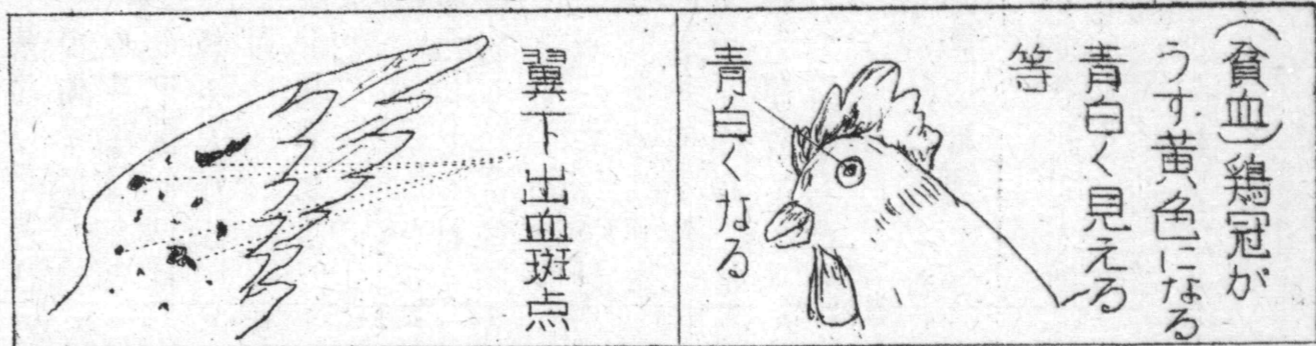 (貧血)鶏冠が
うす黄色になる
青白く見える
等
青白くなる
翼下出血斑点